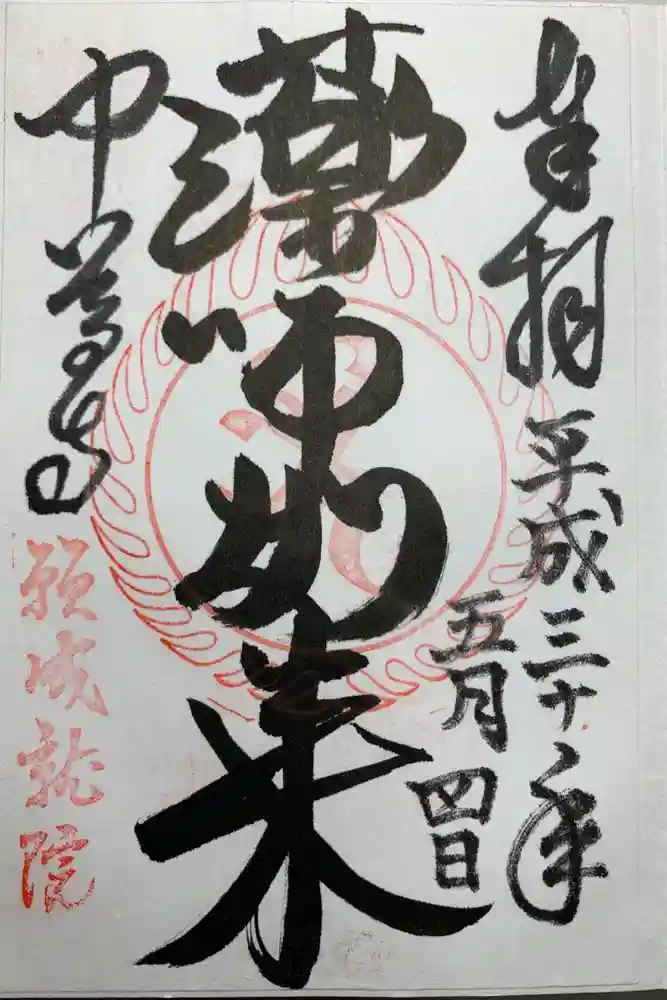 奉拝
平成三十年
五月四日
薬師如来
中尊寺
願成就院